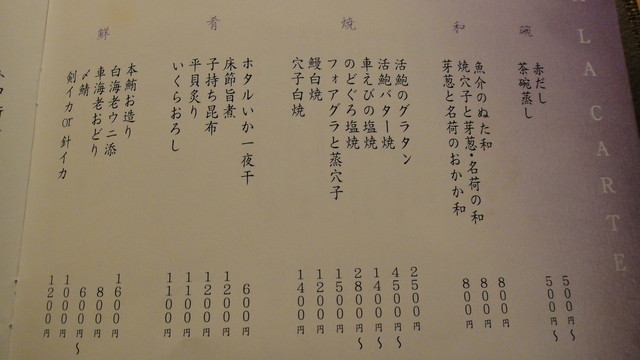 A LA CARTE
碗
赤だし 500円〜
茶碗蒸し 500円〜
和
魚介のぬた和 800円
焼穴子と芽葱・名荷の和 800円
芽葱と名荷のおかか和 800円
焼
活鮑のグラタン 2500円
活鮑バター焼 4500円〜
車えびの塩焼 1400円〜
のどぐろ塩焼 2800円〜
フォアグラと蒸穴子 1500円
鰻白焼 1200円
穴子白焼 1400円
肴
ホタルいか一夜干 600円
床節旨煮 1200円
子持ち昆布 1200円
平貝炙り 1100円
いくらおろし 1100円
鮮
本鮪お造り 1600円
白海老ウニ添 800円
車海老おどり 600円〜
〆鯖 1000円
剣イカor針イカ 1200円